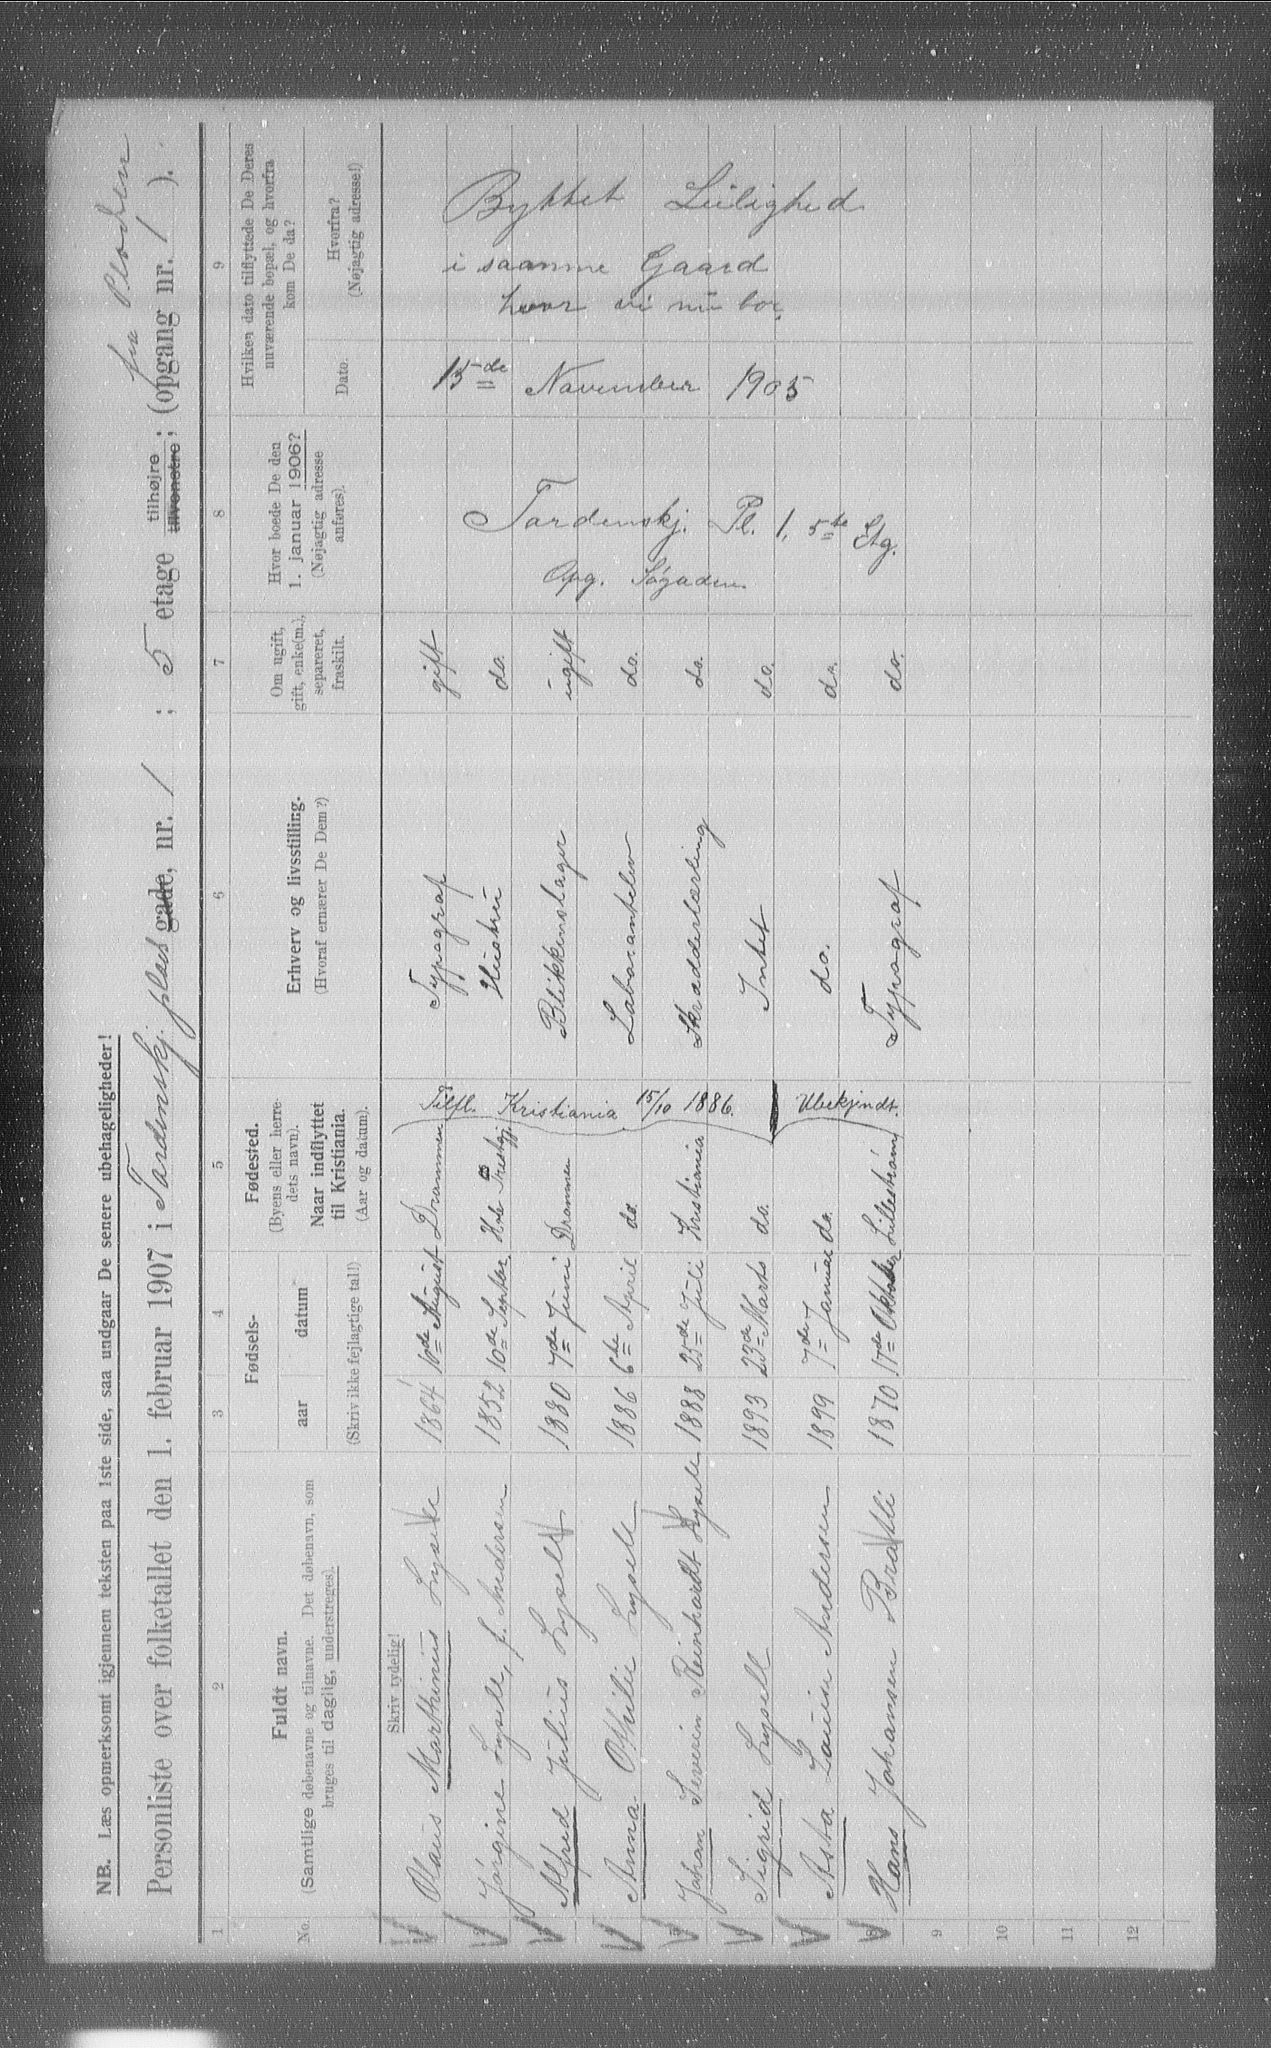 NB. Læs opmerksomt igjennem teksten paa 1ste side, saa undgaar De senere ubehageligheder!
fra Pladsen
Personliste over folketallet den 1. februar 1907 i Tordenskj. plads gade, nr. 1 ; 5 etage tilhøjre tilvenstre; (opgang nr. 1 ).
1 2 3 4 5 6 7 8 9
No.
Fuldt navn.
(Samtlige døbenavne og tilnavne. Det døbenavn, som
bruges til daglig, understreges).
Fødsels-
aar datum
(Skriv ikke fejlagtige tal!)
Fødested.
(Byens eller herre-
dets navn).
Naar indflyttet
til Kristiania.
(Aar og datum).
Erhverv og livsstilling.
(Hvoraf ernærer De Dem?)
Om ugift,
gift, enke(m.),
separeret,
fraskilt.
Hvor boede De den
1. januar 1906?
(Nøjagtig adresse
anføres).
Hvilken dato tilflyttede De Deres
nuværende bopæl, og hvorfra
kom De da?
Dato.
Hvorfra?
(Nøjagtig adresse!)
Skriv tydelig!
Olaus Marthinius Lysell 1864 10de August Drammen Typograf gift
Jörgine Lysell, f. Andersen 1852 10de Septbr. Hole Hustru do.
Alfred Julius Lysell 1880 7de Juni Drammen Blikkenslager ugift
Anna Othilie Lysell 1886 6te April do. Laborantelev do.
Johan Severin Reinhardt Lysell 1888 25de Juli Kristiania Skrædderlærling do.
Sigrid Lysell 1893 23de Marts do. Intet do.
Asta Andersen 1899 7de Januar do. do. do.
Hans Johansen Bratli 1870 17de Oktober Lillestrøm Typograf do.
Tilfl. Kristiania 15/10 1886.
Ubekjendt.
Tordenskj. Pl. 1, 5te Etg.
Opg. Søgaden
15de November 1905
Byttet Leilighed
i samme Gaard
hvor vi nu bor.
9
10
11
12